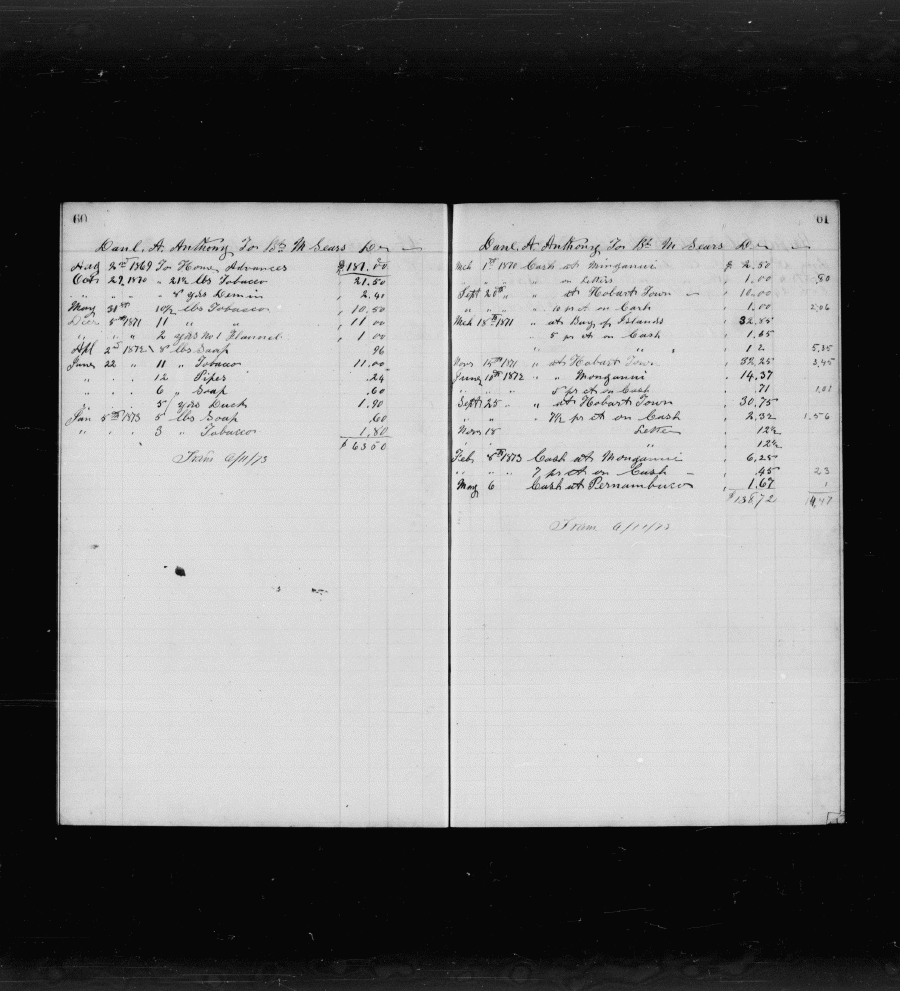 60
Danl. A. Anthony To Bk M Sears Dr
Aug 2nd 1869 To Home Advances $ 181.00
Oct 29 1870 " 21½ lbs Tobacco 21.50
" " " " 8 yds Denim , 2.41
May 31st 10½ lbs Tobacco , 10.50
Decr 5th 1871 11 " " , 11 00
" " " 2 yds No 1 Flannel , 1 00
Apl 2d 1872 8 lbs Soap 96
June 22 " 11 " Tobacco 11.00
" . . 12 Pipes .24
" . . 6 " Soap .60
" . . 5 yds Duck 1.90
Jan 5th 1873 5 lbs Soap .60
" . . 3 " Tobacco 1.80
$ 63 50
61
Danl. A Anthony To Bk M Sears Dr
Mch 1st 1870 Cash at Monganui $ 2.50
" " " " on Letters , 1.00 80
Sept 20th " " at Hobart Town , 10.00
" " " " 10 pr ct on Cash , 1.00 2,06
Mch 18th 1871 " at Bay of Islands , 32.85
" 5 pr ct on Cash , 1.65
" " " , 12 5,35
Nov 15th 1871 " at Hobart Town , 32.25 3,45
June 10th 1872 " " Monganui , 14.37
" " " " 5 pr ct on Cash , .71 1,01
Sept 25 " " at Hobart Town , 30.75
" " " 7½ pr ct on Cash , 2.32 1.576
Nov 18 Letter , 12½
" , 12½
Feb 8th 1873 Cash at Monganui , 6.25
" " " 7 pr ct on Cash , .45 23
May 6 Cash at Pernambuco , 1.67 1
$ 138,72 14,47